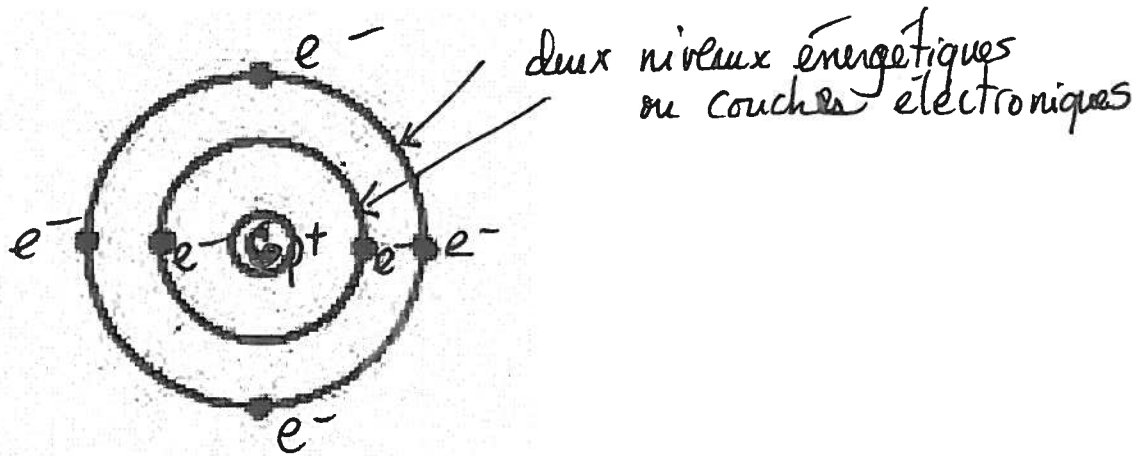 e⁻
deux niveaux énergétiques
ou couches électroniques
e⁻ e⁻ 6p⁺ e⁻ e⁻
e⁻